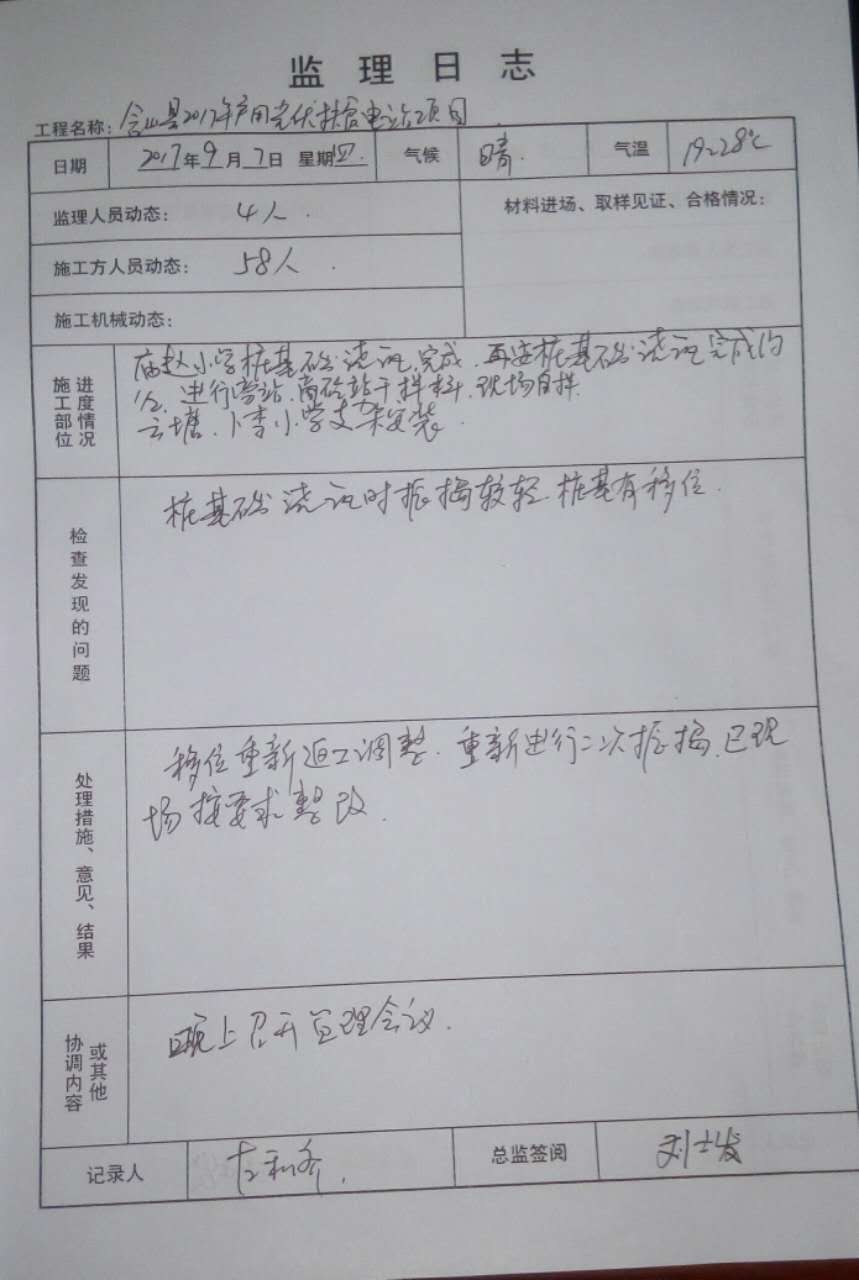 监理日志
工程名称：含山县2017年户用光伏扶贫电站项目
日期 2017年9月7日 星期四 气候 晴 气温 19~28℃
监理人员动态： 4人
材料进场、取样见证、合格情况：
施工方人员动态： 58人
施工机械动态：
进度情况
施工部位
庙赵小学桩基础浇砼完成、桩基础浇砼完成约
1/2，进行旁站、商砼站干拌料、现场自拌
云塘、卜李小学支架安装
检查发现的问题
桩基础浇砼时振捣较轻、桩基有移位
处理措施、意见、结果
移位重新返工调整、重新进行二次振捣、已现
场按要求整改
或其他
协调内容
晚上召开监理会议
记录人 总监签阅 刘士发